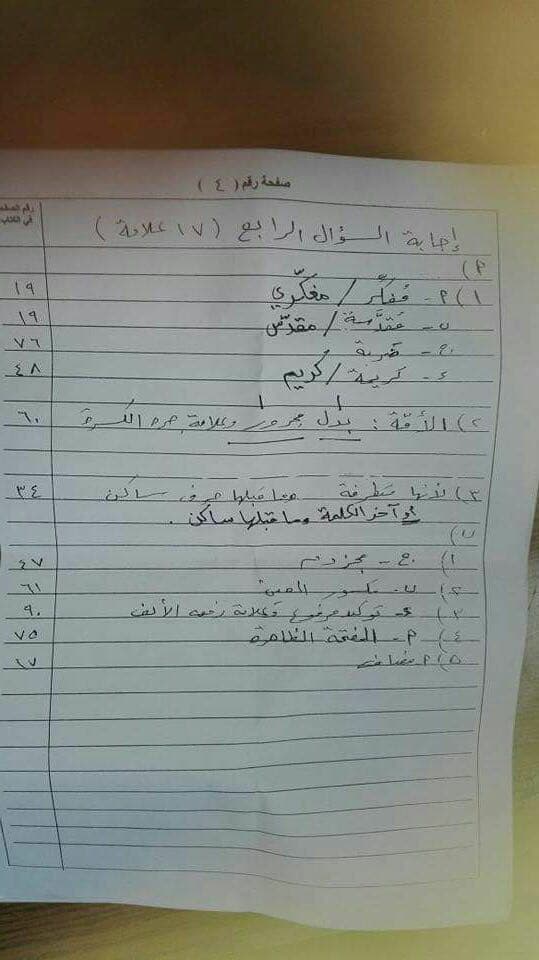 صفحة رقم ( ٤ )
رقم الصفحة
في الكتاب
إجابة السؤال الرابع ( ١٧ علامة )
٢)
١) ٢- مُفكِّر / مفكّري ١٩
ب- مُقدَّسة / مقدّس ١٩
ج- ضربة ٧٦
د- كريمة / كُريم ٤٨
٢) الأمّة : بدل مجرور وعلامة جره الكسرة ٦٠
٣) لأنها متطرفة وما قبلها حرف ساكن ٣٤
أو آخر الكلمة وما قبلها ساكن .
ب)
١) ج - مجزوم ٤٧
٢) ب- مكسور العين ٦١
٣) د- توكيد مرفوع وعلامة رفعه الألف ٩٠
٤) ٢- الفتحة الظاهرة ٧٥
٥) ٢ مضاف ٦٧